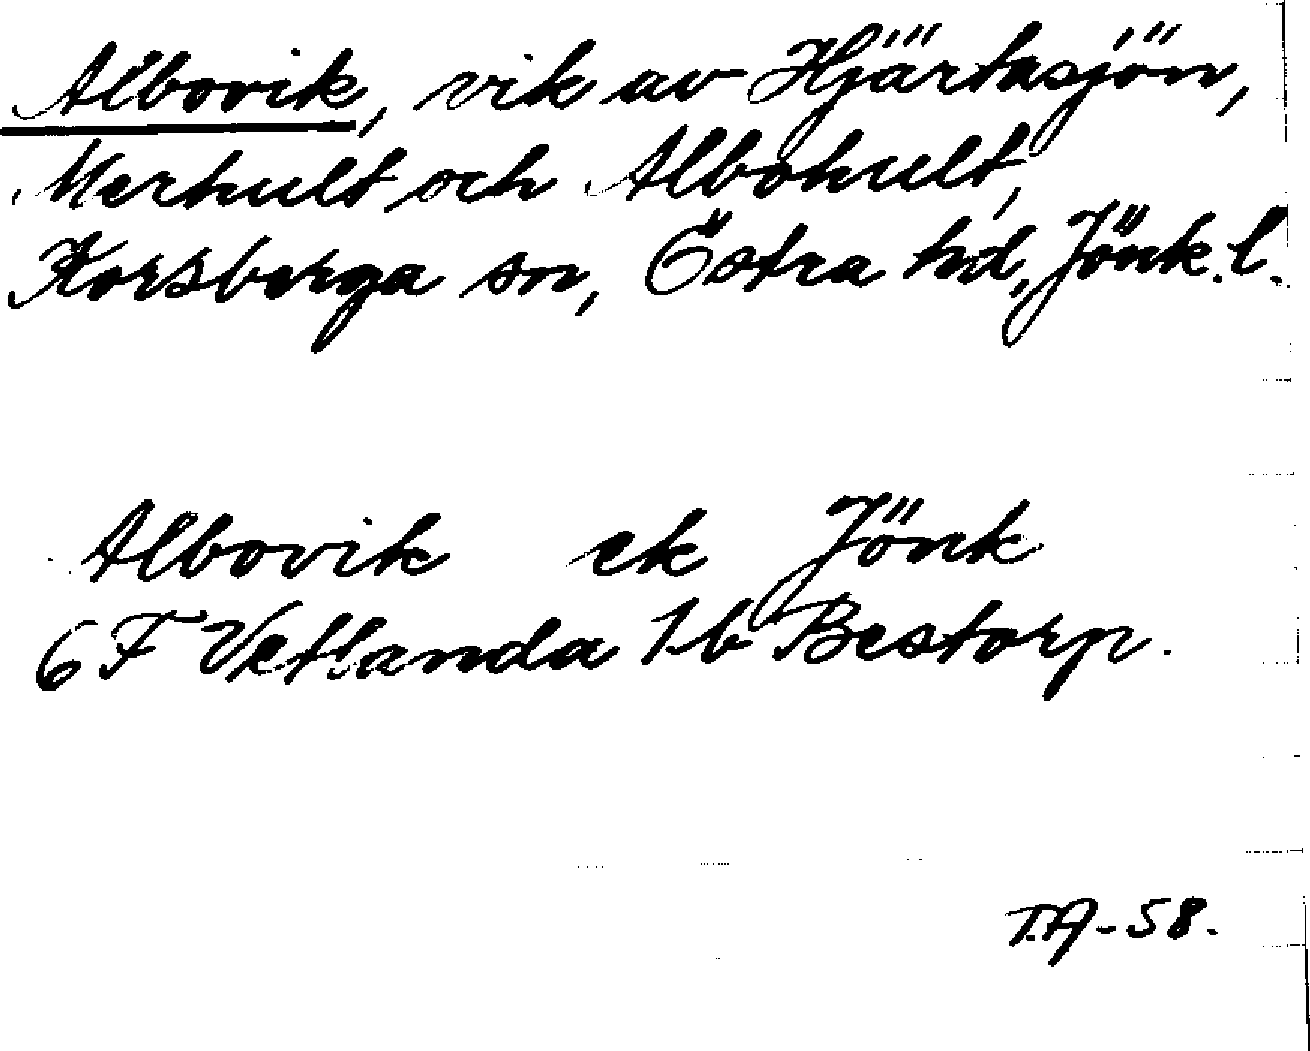 Albovik, vik av Hjärtasjön,
Merhult och Albohult,
Korsberga sn, Östra hd, Jönk. l.
Albovik ek Jönk
6 F Vetlanda 1b Bestorp.
T.A-58.